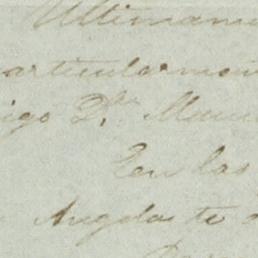 Ultimame
articularmen
igo D.n Manu
En las
Angelas te